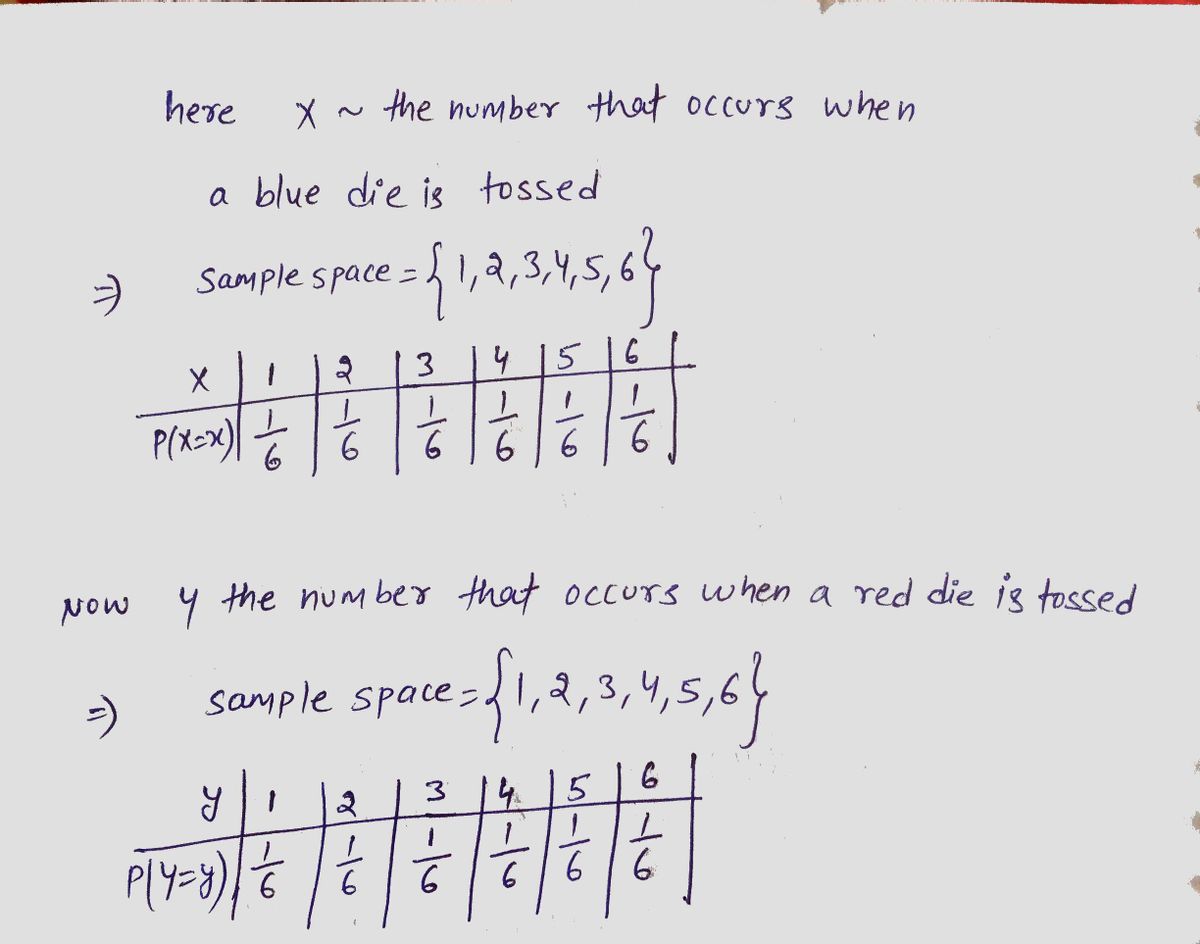 here X ~ the number that occurs when
a blue die is tossed
⇒ Sample space = { 1, 2, 3, 4, 5, 6 }
X | 1 | 2 | 3 | 4 | 5 | 6 |
P(X=x) | 1/6 | 1/6 | 1/6 | 1/6 | 1/6 | 1/6 |
NOW Y the number that occurs when a red die is tossed
⇒ sample space = { 1, 2, 3, 4, 5, 6 }
y | 1 | 2 | 3 | 4 | 5 | 6 |
P(Y=y) | 1/6 | 1/6 | 1/6 | 1/6 | 1/6 | 1/6 |